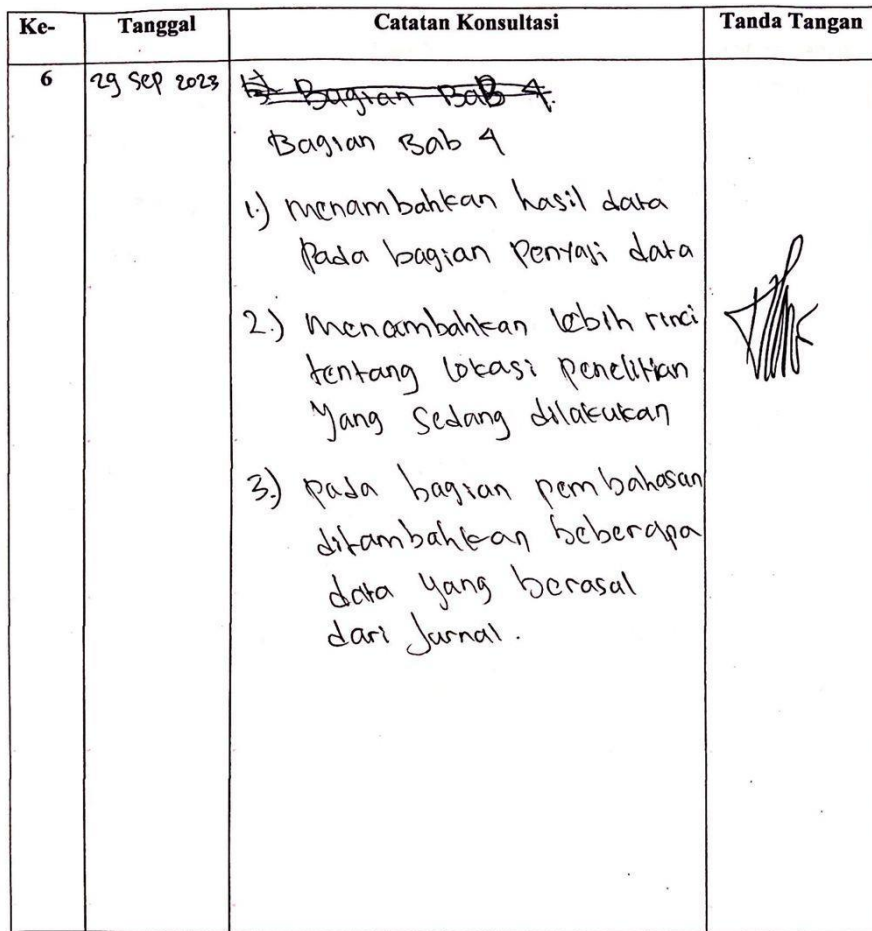 Ke- Tanggal Catatan Konsultasi Tanda Tangan
6 29 Sep 2023 Bagian BaB 4.
Bagian Bab 4
1.) menambahkan hasil data
Pada bagian Penyaji data
2.) menambahkan lebih rinci
tentang lokasi penelitian
yang sedang dilakukan
3.) pada bagian pembahasan
ditambahkan beberapa
data yang berasal
dari Jurnal.